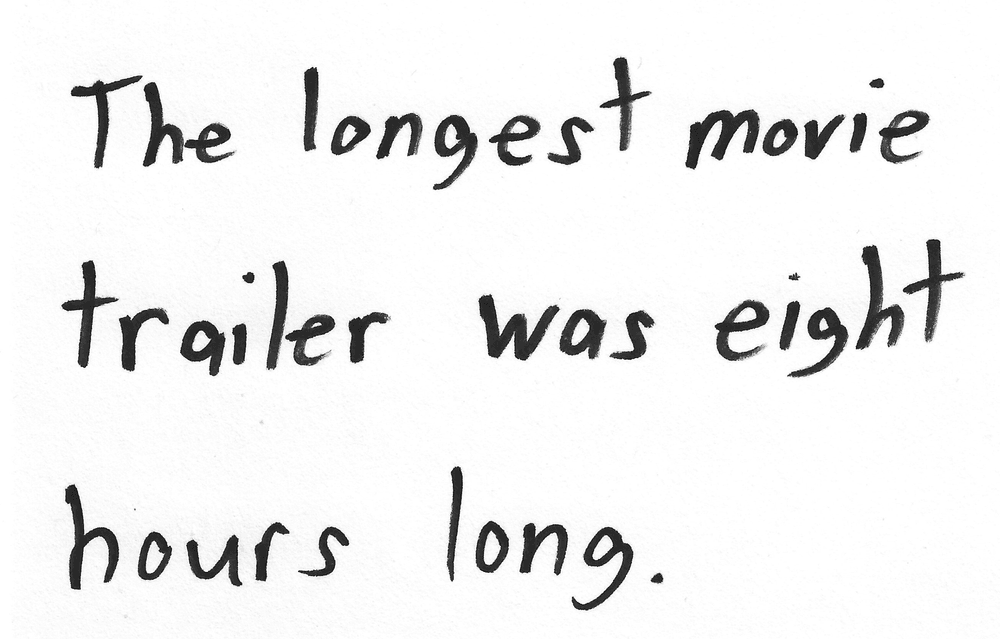 The longest movie
trailer was eight
hours long.